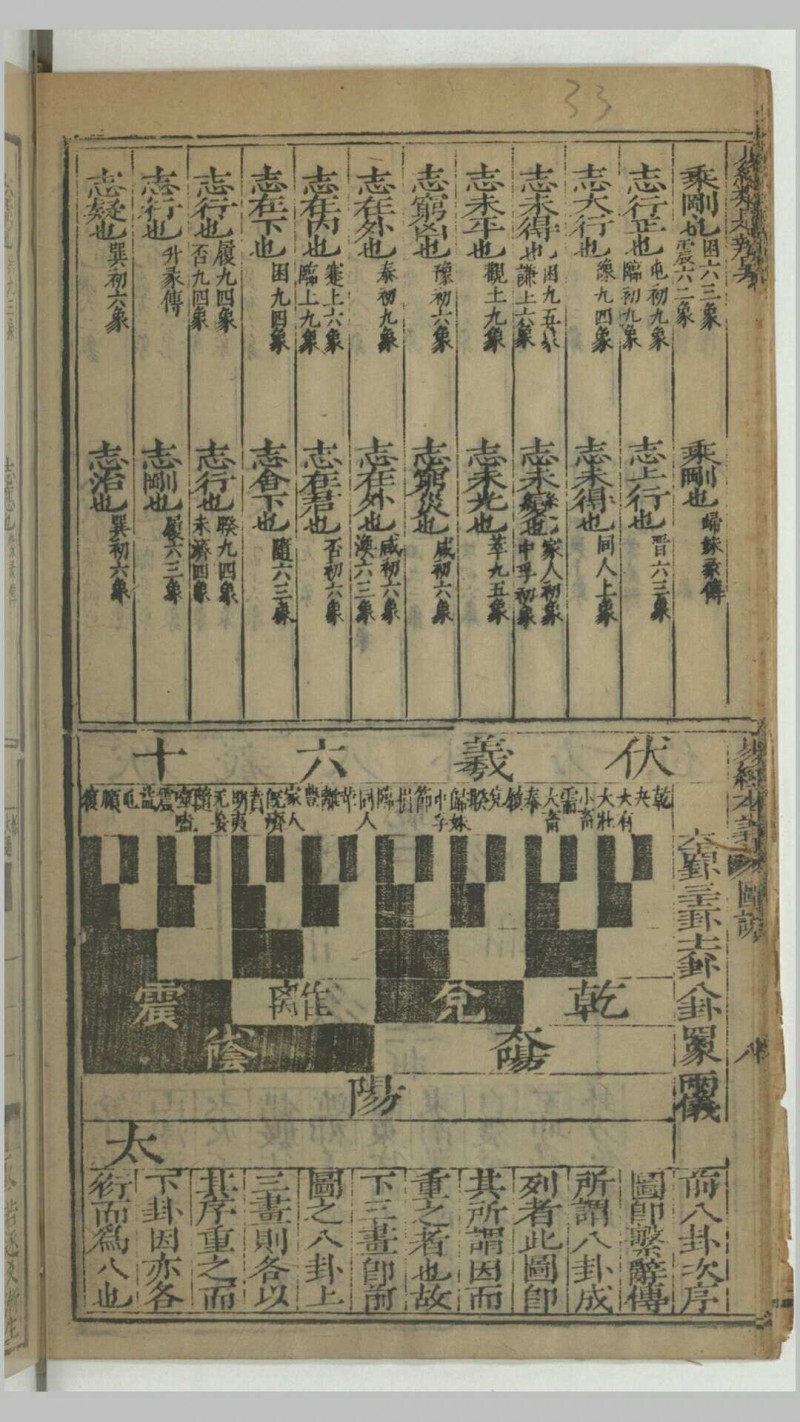 33
乘剛也 困六三象 震六二象
志行正也 屯初九象 臨初九象
志大行也 豫九四象
志未得也 困九五象 謙上六象
志未平也 觀上九象
志窮凶也 豫初六象
志在外也 泰初九象
志在內也 蹇上六象 臨上九象
志在下也 困九四象
志行也 履九四象 否九四象
志行也 升彖傳
志疑也 巽初六象
乘剛也 歸妹彖傳
志上行也 晋六三象
志未得也 同人上象
志未變也 家人初象 中孚初象
志未光也 萃九五象
志窮災也 咸初六象
志在外也 咸初六象 渙六三象
志在君也 否初六象
志舍下也 隨六三象
志行也 睽九四象 未濟四象
志剛也 履六三象
志治也 巽初六象
易經本義 圖說 八
伏羲六十
乾夬大有大壯小畜需大畜泰履兌睽歸妹中孚節損臨同人革離豐家人既濟賁明夷无妄隨噬嗑震益屯頤復
六四卦
三二卦
十六卦
八卦
四象
兩儀
乾兌離震
太陽少陰
陽
太
而八卦次序
圖卽繫辭傳
所謂八卦成
列者此圖卽
其所謂因而
重之者也故
下三畫卽前
圖之八卦上
三畫則各以
其序重之而
下卦因亦各
衍而爲八也